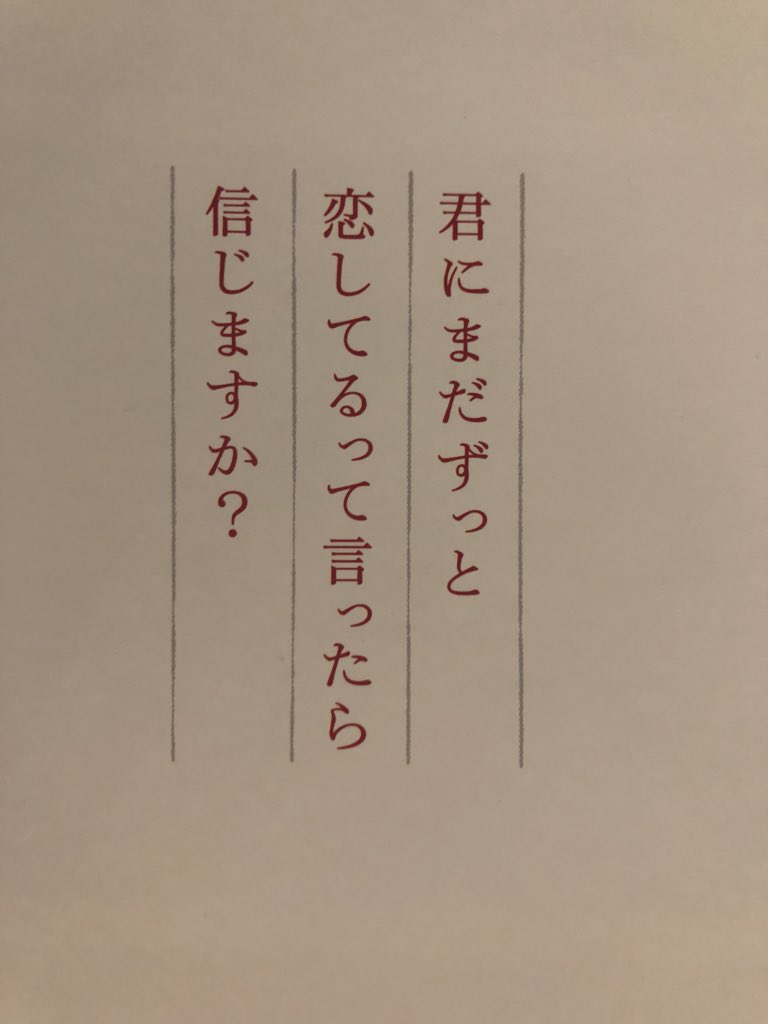 君にまだずっと
恋してるって言ったら
信じますか？